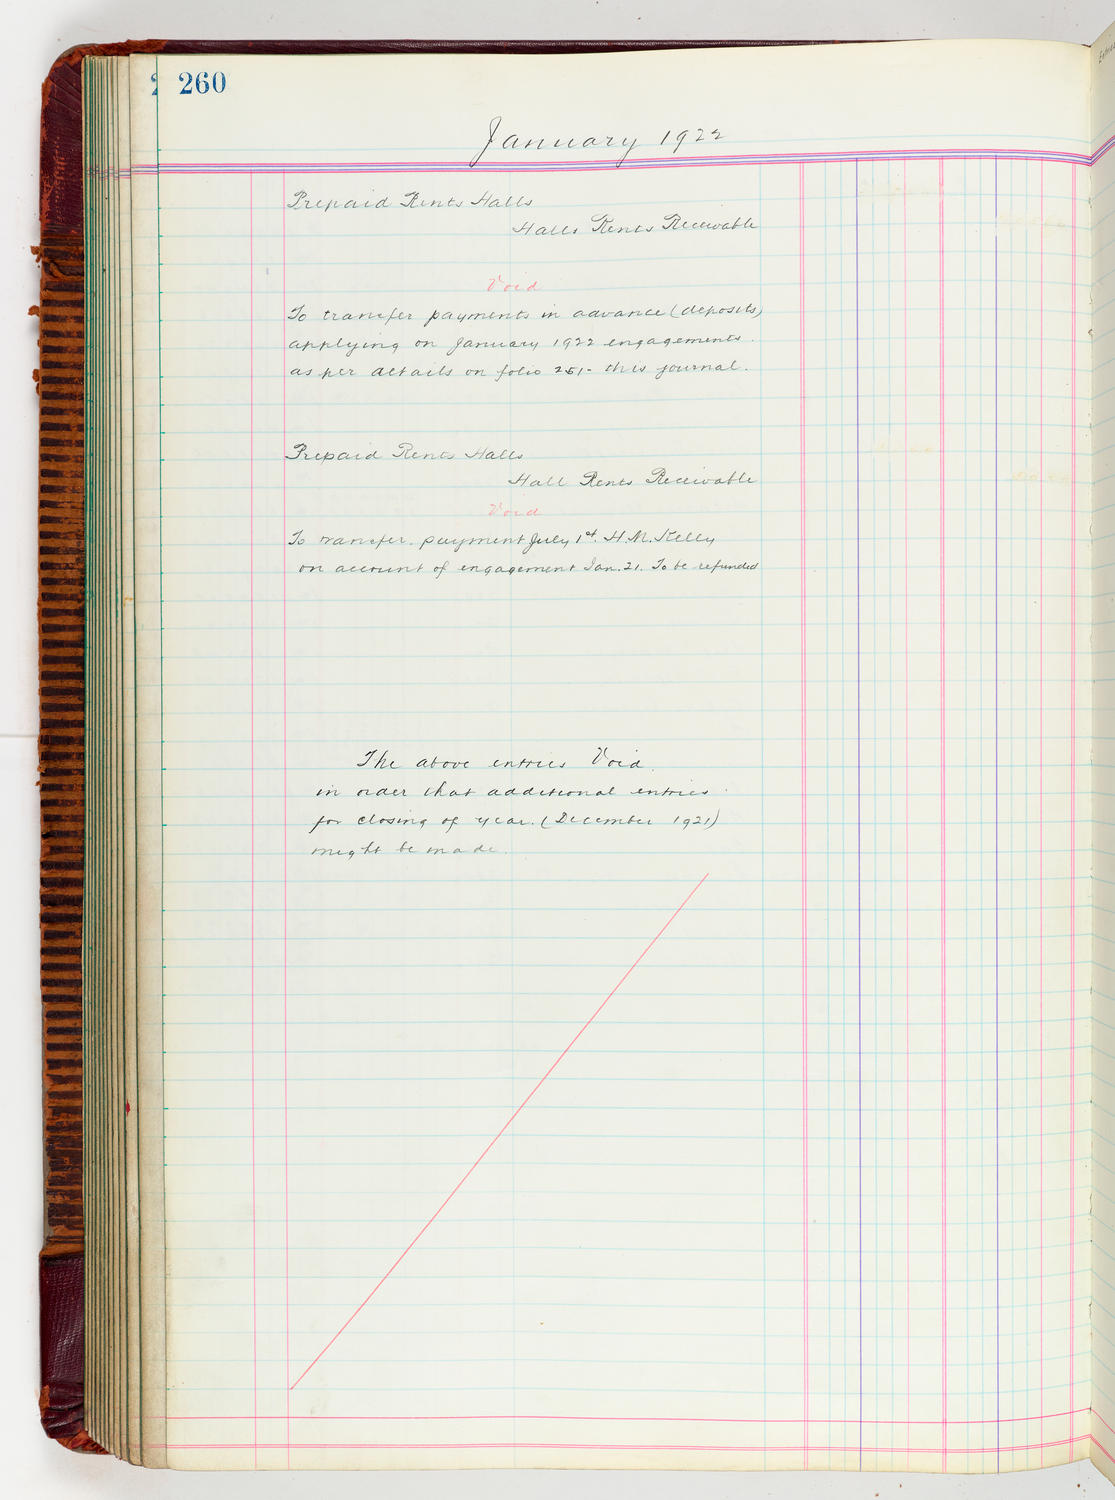 260
January 1922
Prepaid Rents Halls
Halls Rents Receivable
Void
To transfer payments in advance (deposits)
applying on January 1922 engagements.
as per details on folio 251- this journal.
Prepaid Rents Halls
Hall Rents Receivable
Void
To transfer. payment July 1st. H.M. Kelly
on account of engagement Jan. 21. To be refunded
The above entries Void.
in order that additional entries
for closing of year. (December 1921)
might be made.